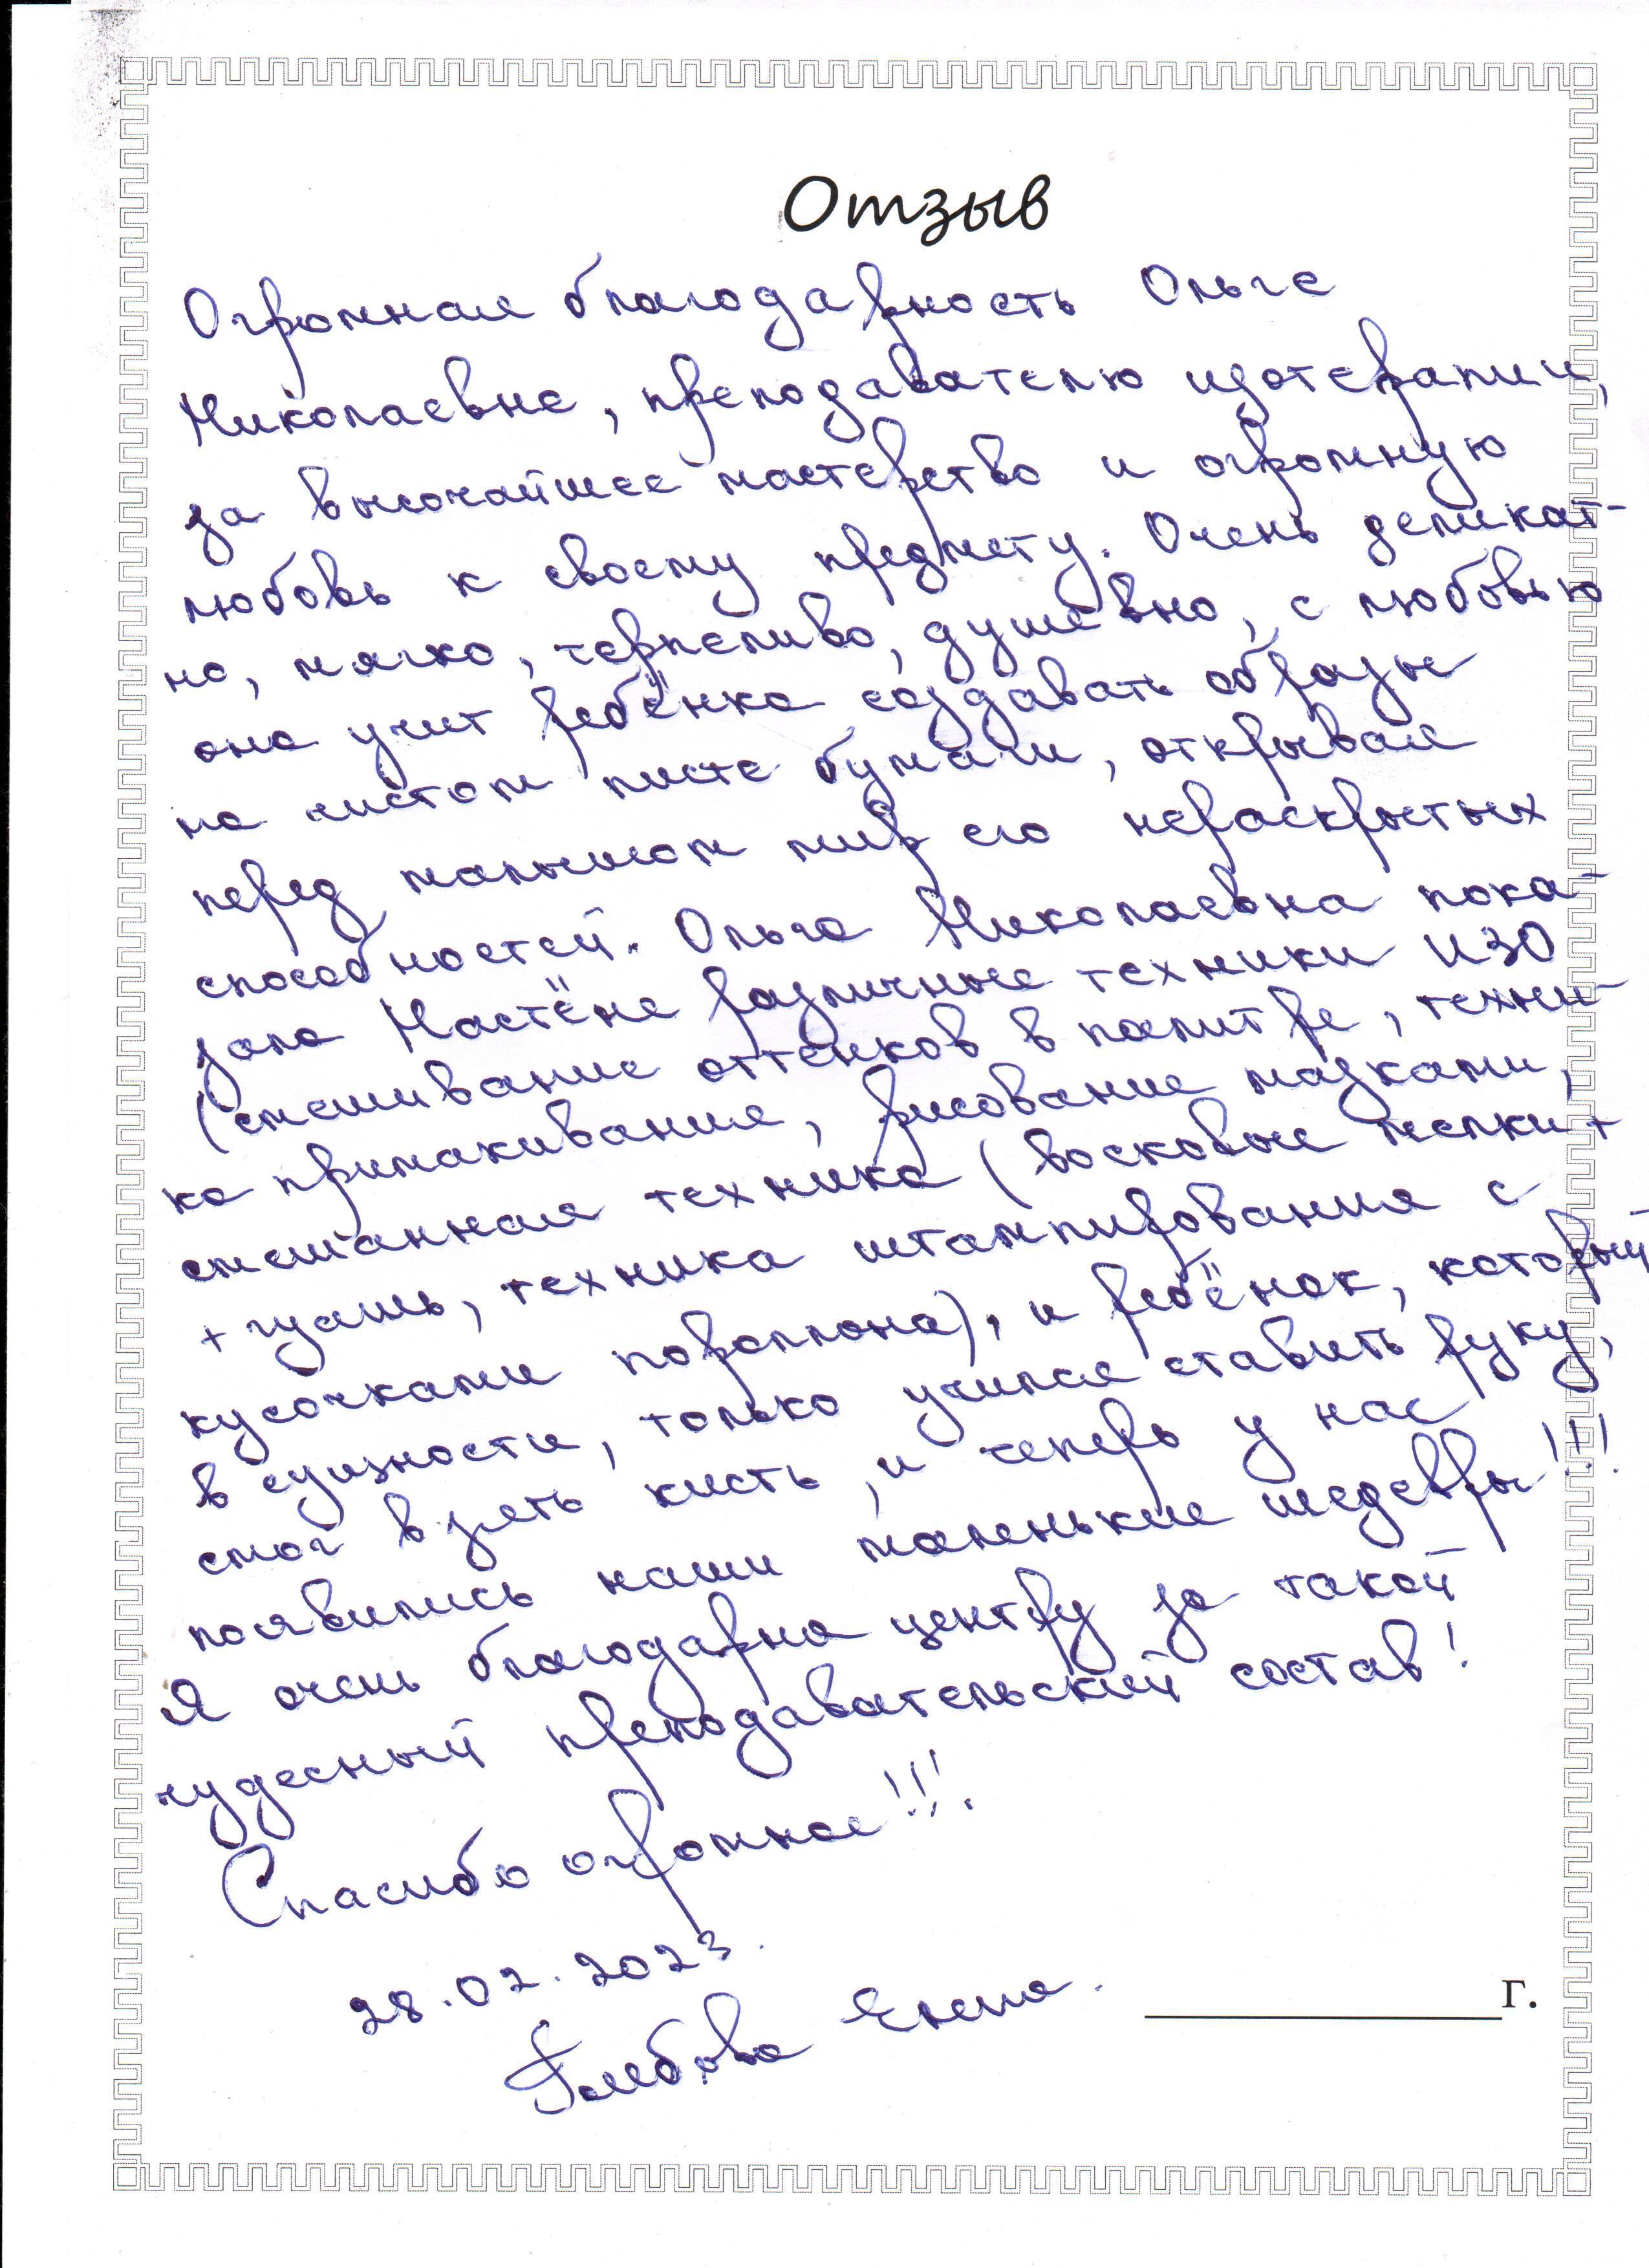 Отзыв
Огромная благодарность Ольге
Николаевне, преподавателю изотерапии,
за высочайшее мастерство и огромную
любовь к своему предмету. Очень деликат-
но, мягко, терпеливо, душевно, с любовью
она учит ребёнка создавать образы
на чистом листе бумаги, открывая
перед малышом мир его нераскрытых
способностей. Ольга Николаевна пока-
зала Настёне различные техники ИЗО
(смешивание оттенков в палитре, техни-
ка примакивания, рисование мазками,
смешанная техника (восковые мелки +
+ гуашь, техника штампирования с
кусочками поролона), и ребёнок, который
в сущности, только учился ставить руку,
смог взять кисть, и теперь у нас
появились наши маленькие шедевры!!!
Я очень благодарна центру за такой
чудесный преподавательский состав!
Спасибо огромное!!!
28.02.2023.
Глебова Елена.
г.